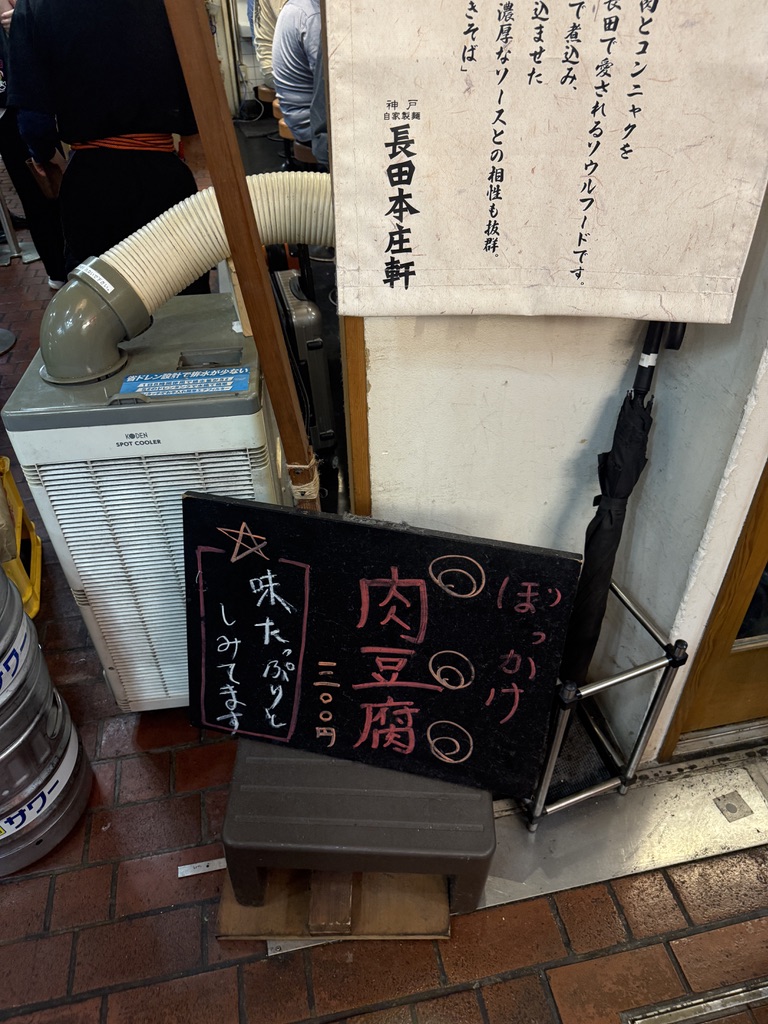 肉とコンニャクを
長田で愛されるソウルフードです。
で煮込み、
込ませた
濃厚なソースとの相性も抜群。
きそば」
神戸
自家製麺
長田本庄軒
省ドレン設計で排水が少ない
KODEN
SPOT COOLER
ぼっかけ
肉豆腐
三〇〇円
味たっぷりと
しみてます
サワー
サワー